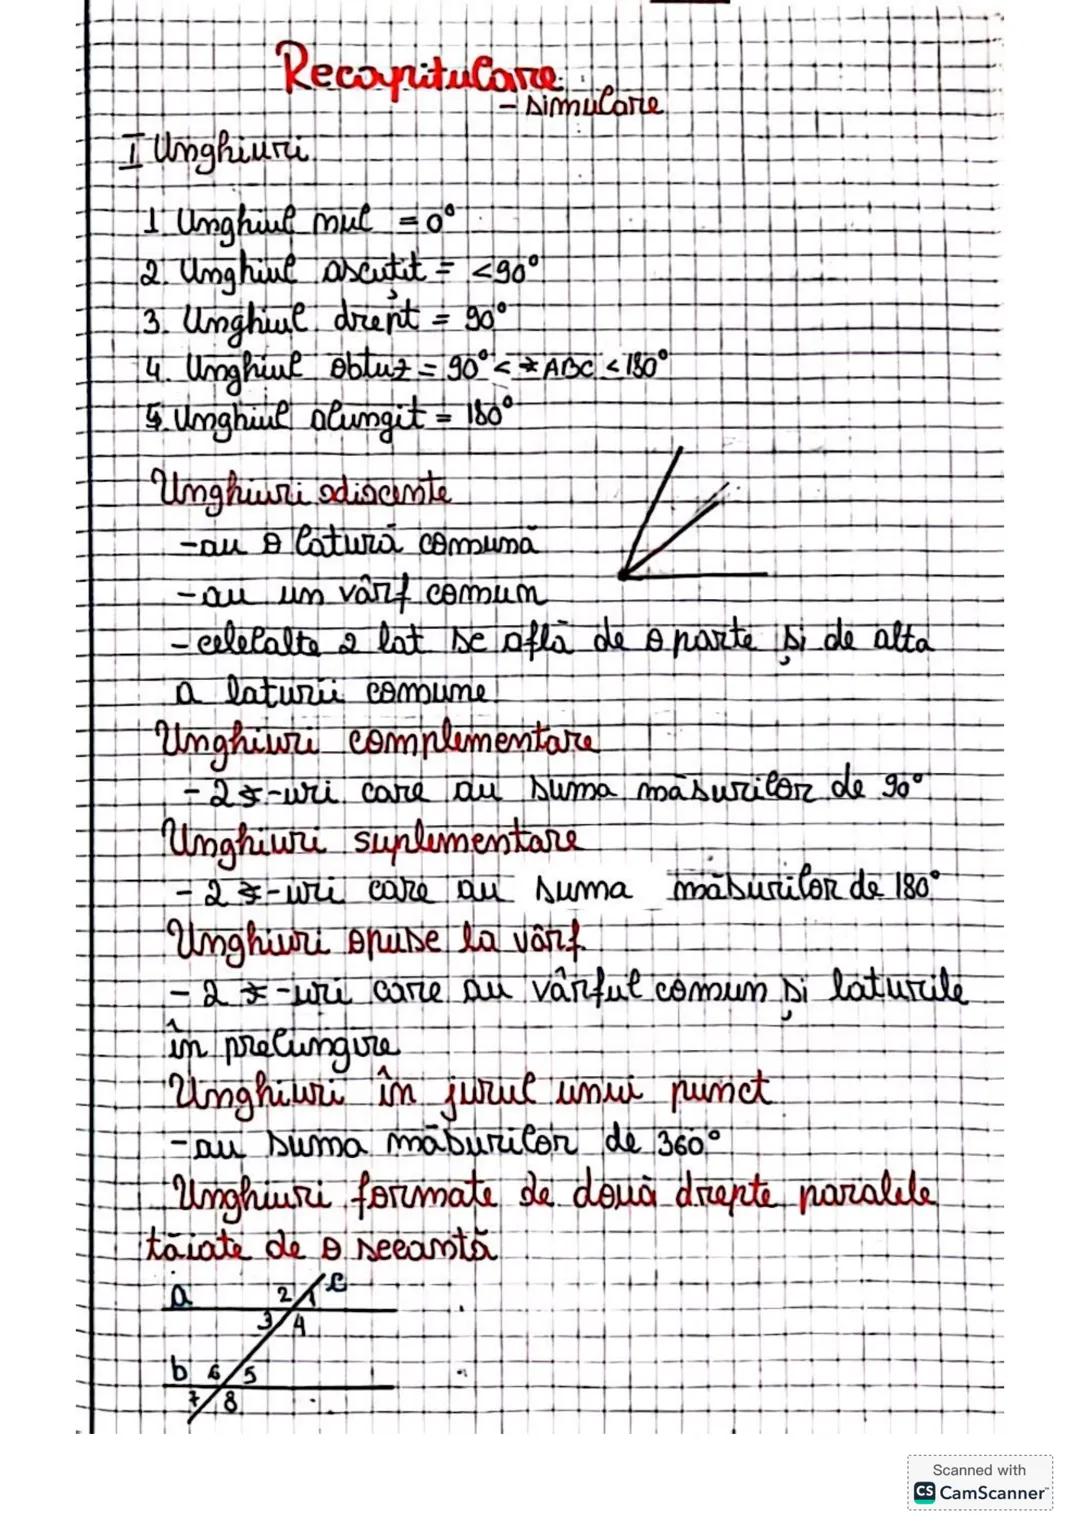 Recapitulare
- simulare
I Unghiuri
1. Unghiul nul = 0°
2. Unghiul ascuțit = <90°
3. Unghiul drept = 90°
4. Unghiul obtuz = 90° < ∢ ABC < 180°
5. Unghiul alungit = 180°
Unghiuri adiacente
- au o latură comună
- au un vârf comun
- celelalte 2 lat se află de o parte și de alta
a laturii comune
Unghiuri complementare
- 2 ∢-uri care au suma măsurilor de 90°
Unghiuri suplementare
- 2 ∢-uri care au suma măsurilor de 180°
Unghiuri opuse la vârf
- 2 ∢-uri care au vârful comun și laturile
în prelungire
Unghiuri în jurul unui punct
- au suma măsurilor de 360°
Unghiuri formate de două drepte paralele
tăiate de o secantă
a 2 1 c
3 4
b 6 5
7 8
Scanned with
CS CamScanner